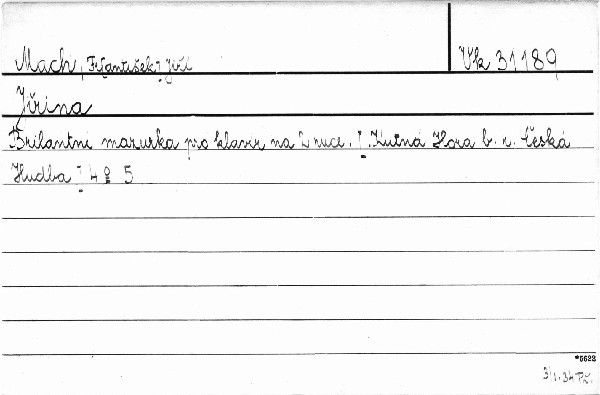 Mach, Fr[antišek] Jiří
Vk 31189
Jiřina
Brilantní mazurka pro klavír na 2 ruce. I. Kutná Hora b. r. Česká
Hudba I 4 8 5
*5622